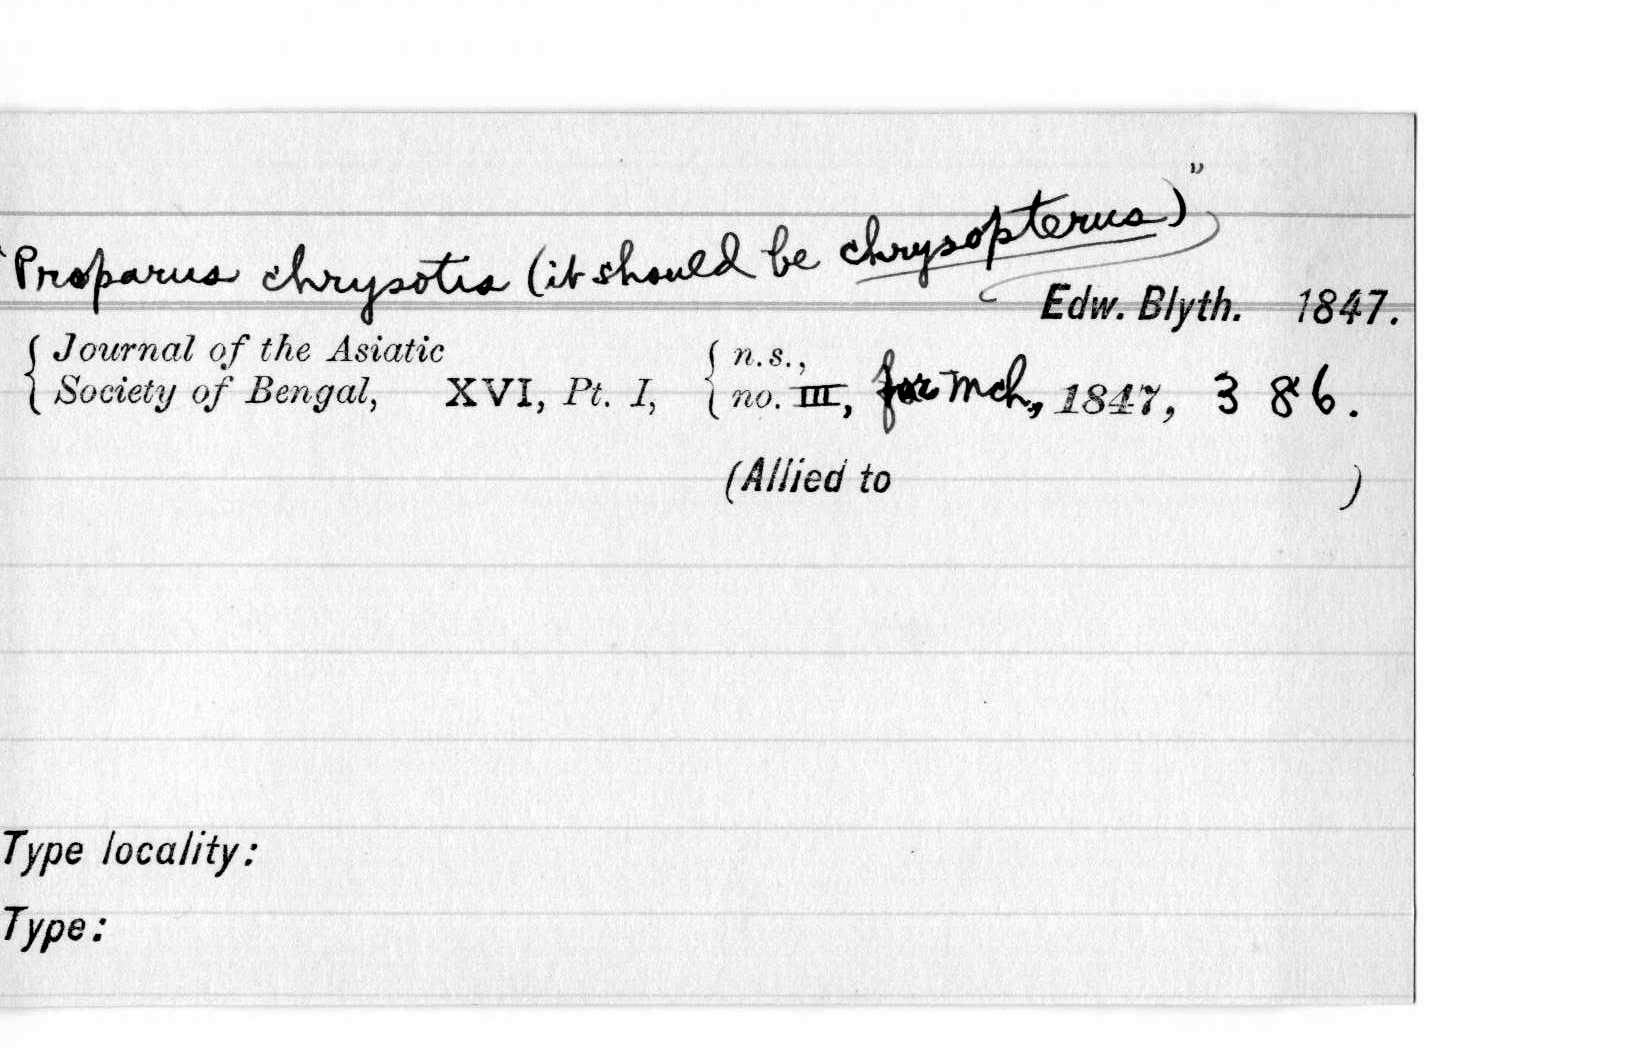 "Proparus chrysotis (it should be chrysopterus)"
Edw. Blyth. 1847.
Journal of the Asiatic
Society of Bengal, XVI, Pt. I, n.s., no. III, for Mch, 1847, 386.
(Allied to )
Type locality:
Type: